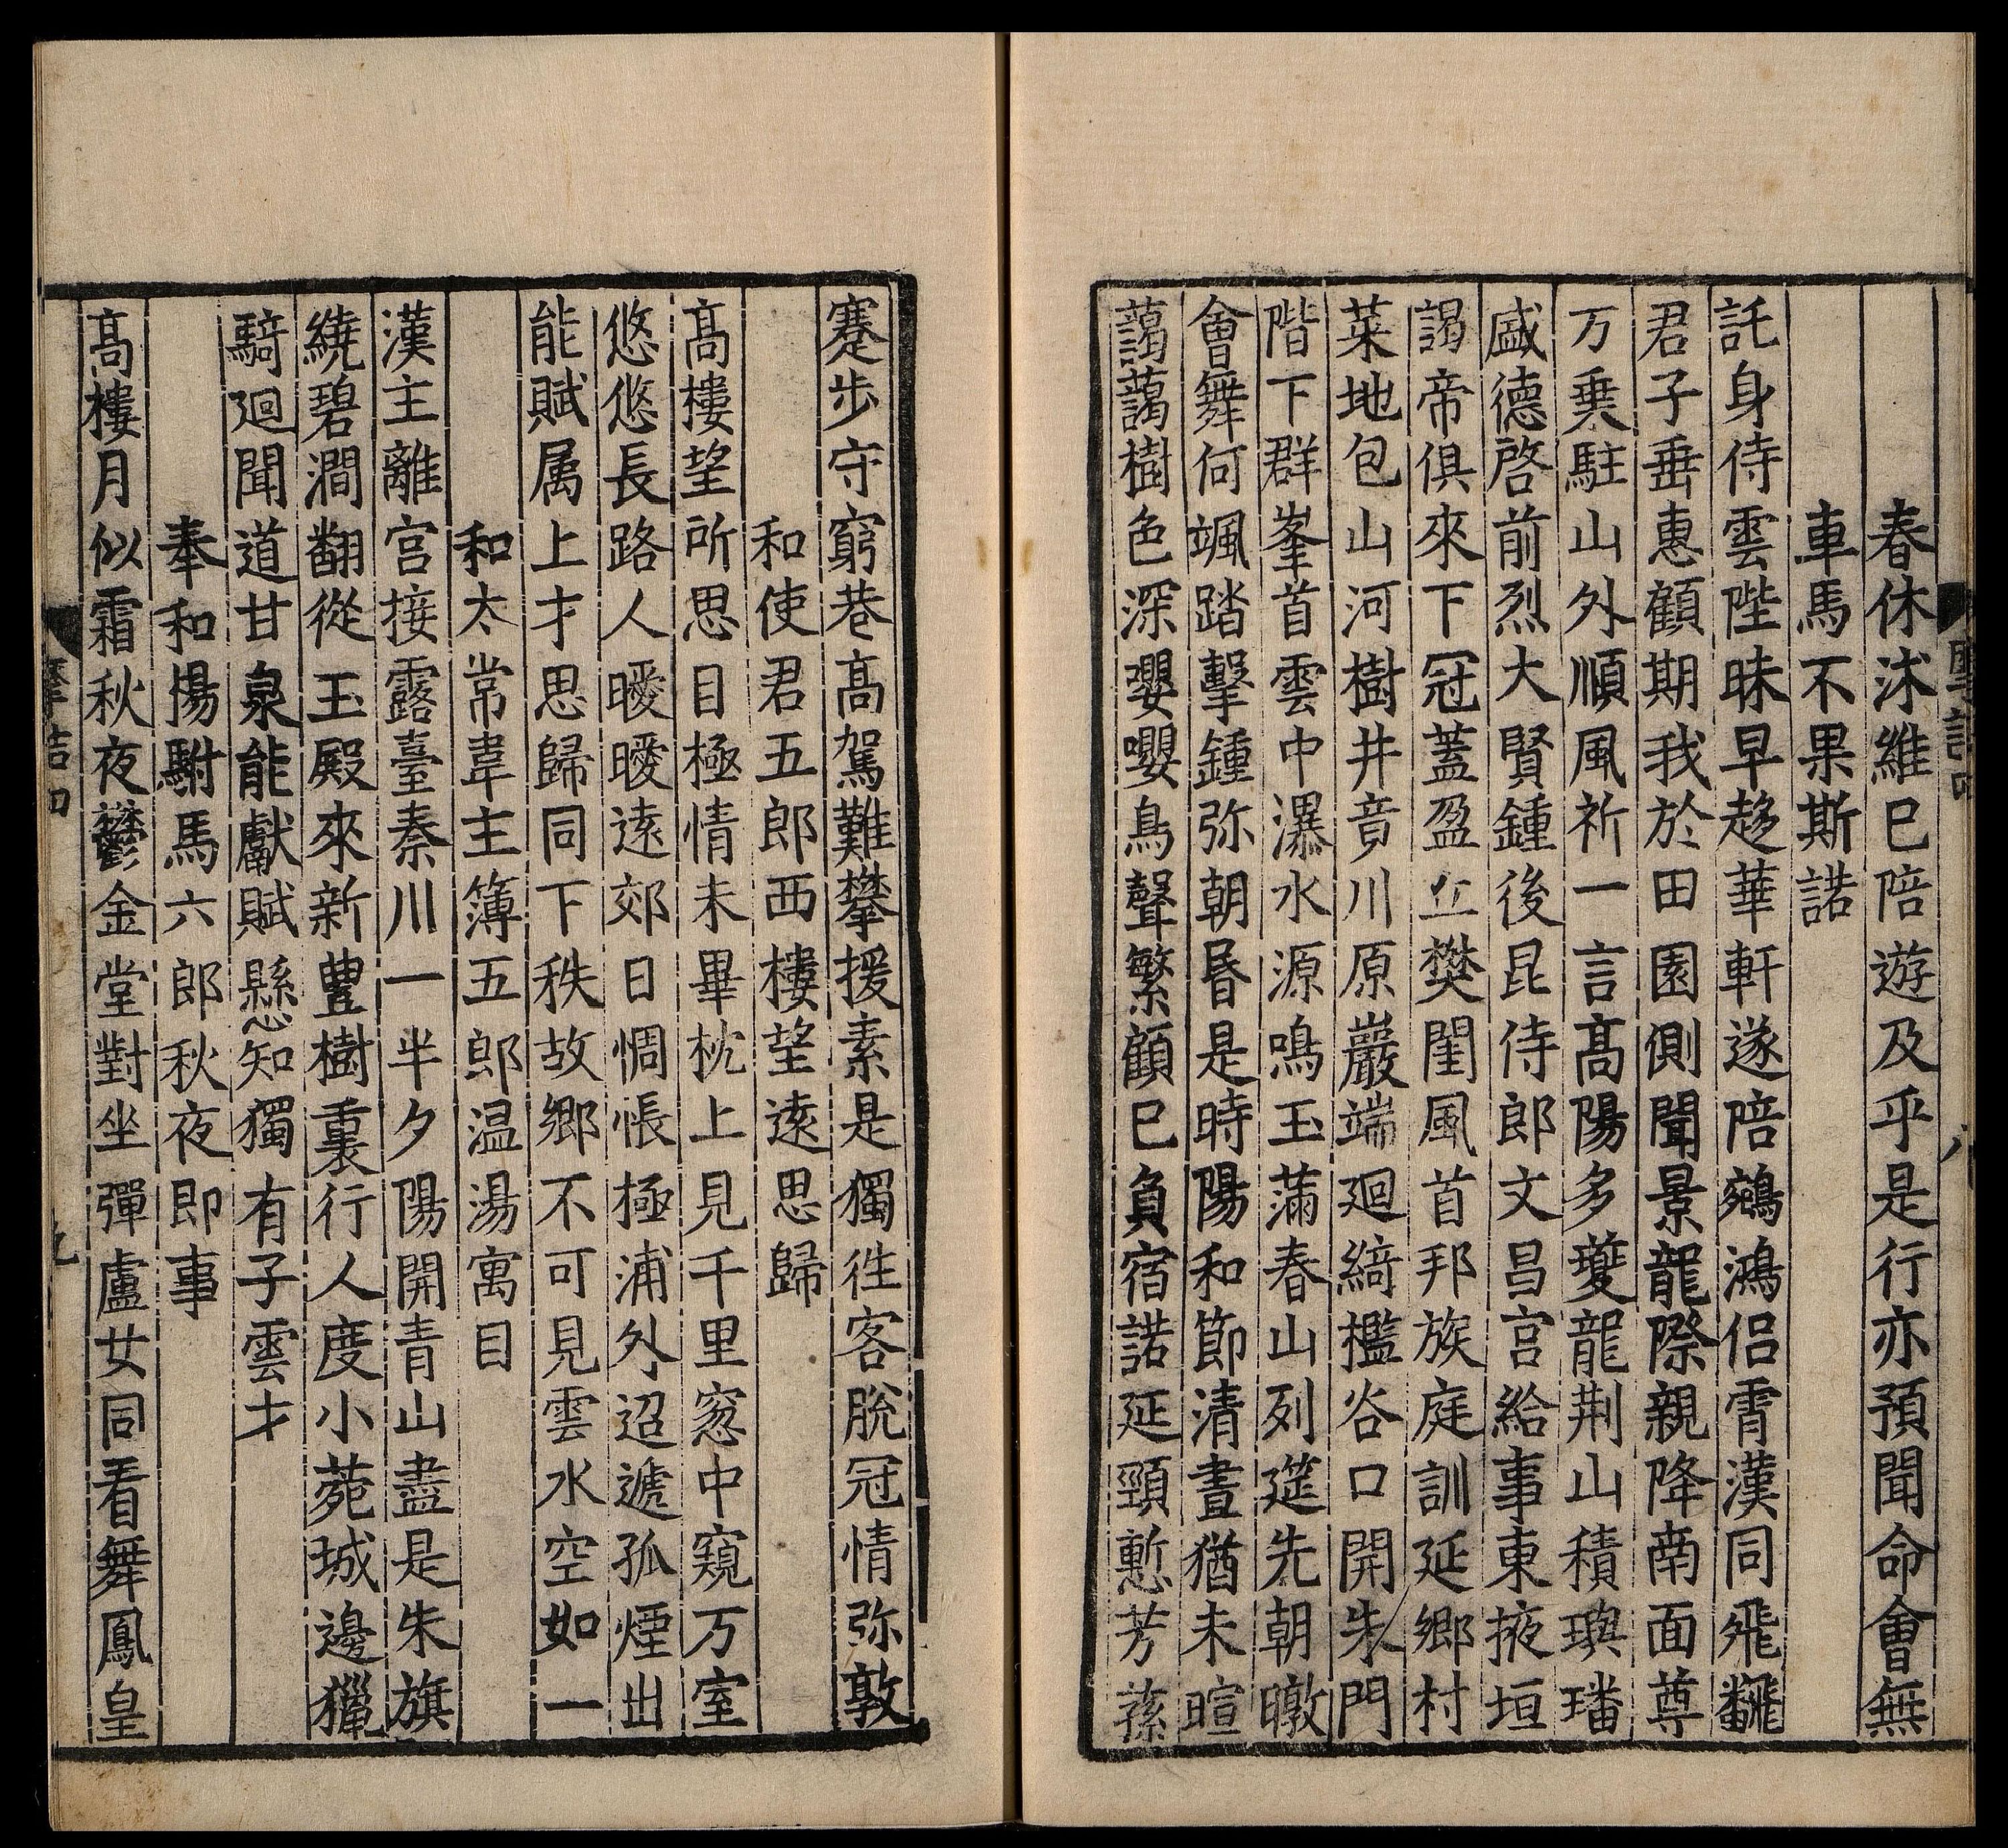 春休沐維已陪遊及乎是行亦預聞命會無
車馬不果斯諾
託身侍雲陛昧早趍華軒遂陪鵷鴻侶霄漢同飛飜
君子垂惠顧期我於田園側聞景龍際親降南面尊
万乗駐山外順風祈一言髙陽多夔龍荆山積璵璠
盛德啓前烈大賢鍾後昆侍郎文昌宫給事東掖垣
謁帝俱來下冠蓋盈丘樊閨風首邦族庭訓延鄉村
菜地包山河樹井竟川原巖端廻綺檻谷口開朱門
階下群峯首雲中瀑水源鳴玉滿春山列筵先朝暾
會舞何颯踏擊鍾弥朝昏是時陽和節清晝猶未暄
藹藹樹色深嚶嚶鳥聲繁顧已負宿諾延頸慙芳蓀
蹇步守窮巷髙駕難攀援素是獨徃客脫冠情弥敦
和使君五郎西樓望逺思歸
髙樓望所思目極情未畢枕上見千里窓中窺万室
悠悠長路人曖曖逺郊日惆悵極浦外迢遞孤煙出
能賦属上才思歸同下秩故鄉不可見雲水空如一
和太常韋主簿五郎温湯寓目
漢主離宫接露臺秦川一半夕陽開青山盡是朱旗
繞碧澗翻從玉殿來新豊樹裏行人度小菀城邊獵
騎廻聞道甘泉能獻賦懸知獨有子雲才
奉和揚駙馬六郎秋夜即事
髙樓月似霜秋夜鬱金堂對坐彈盧女同看舞鳳皇
九